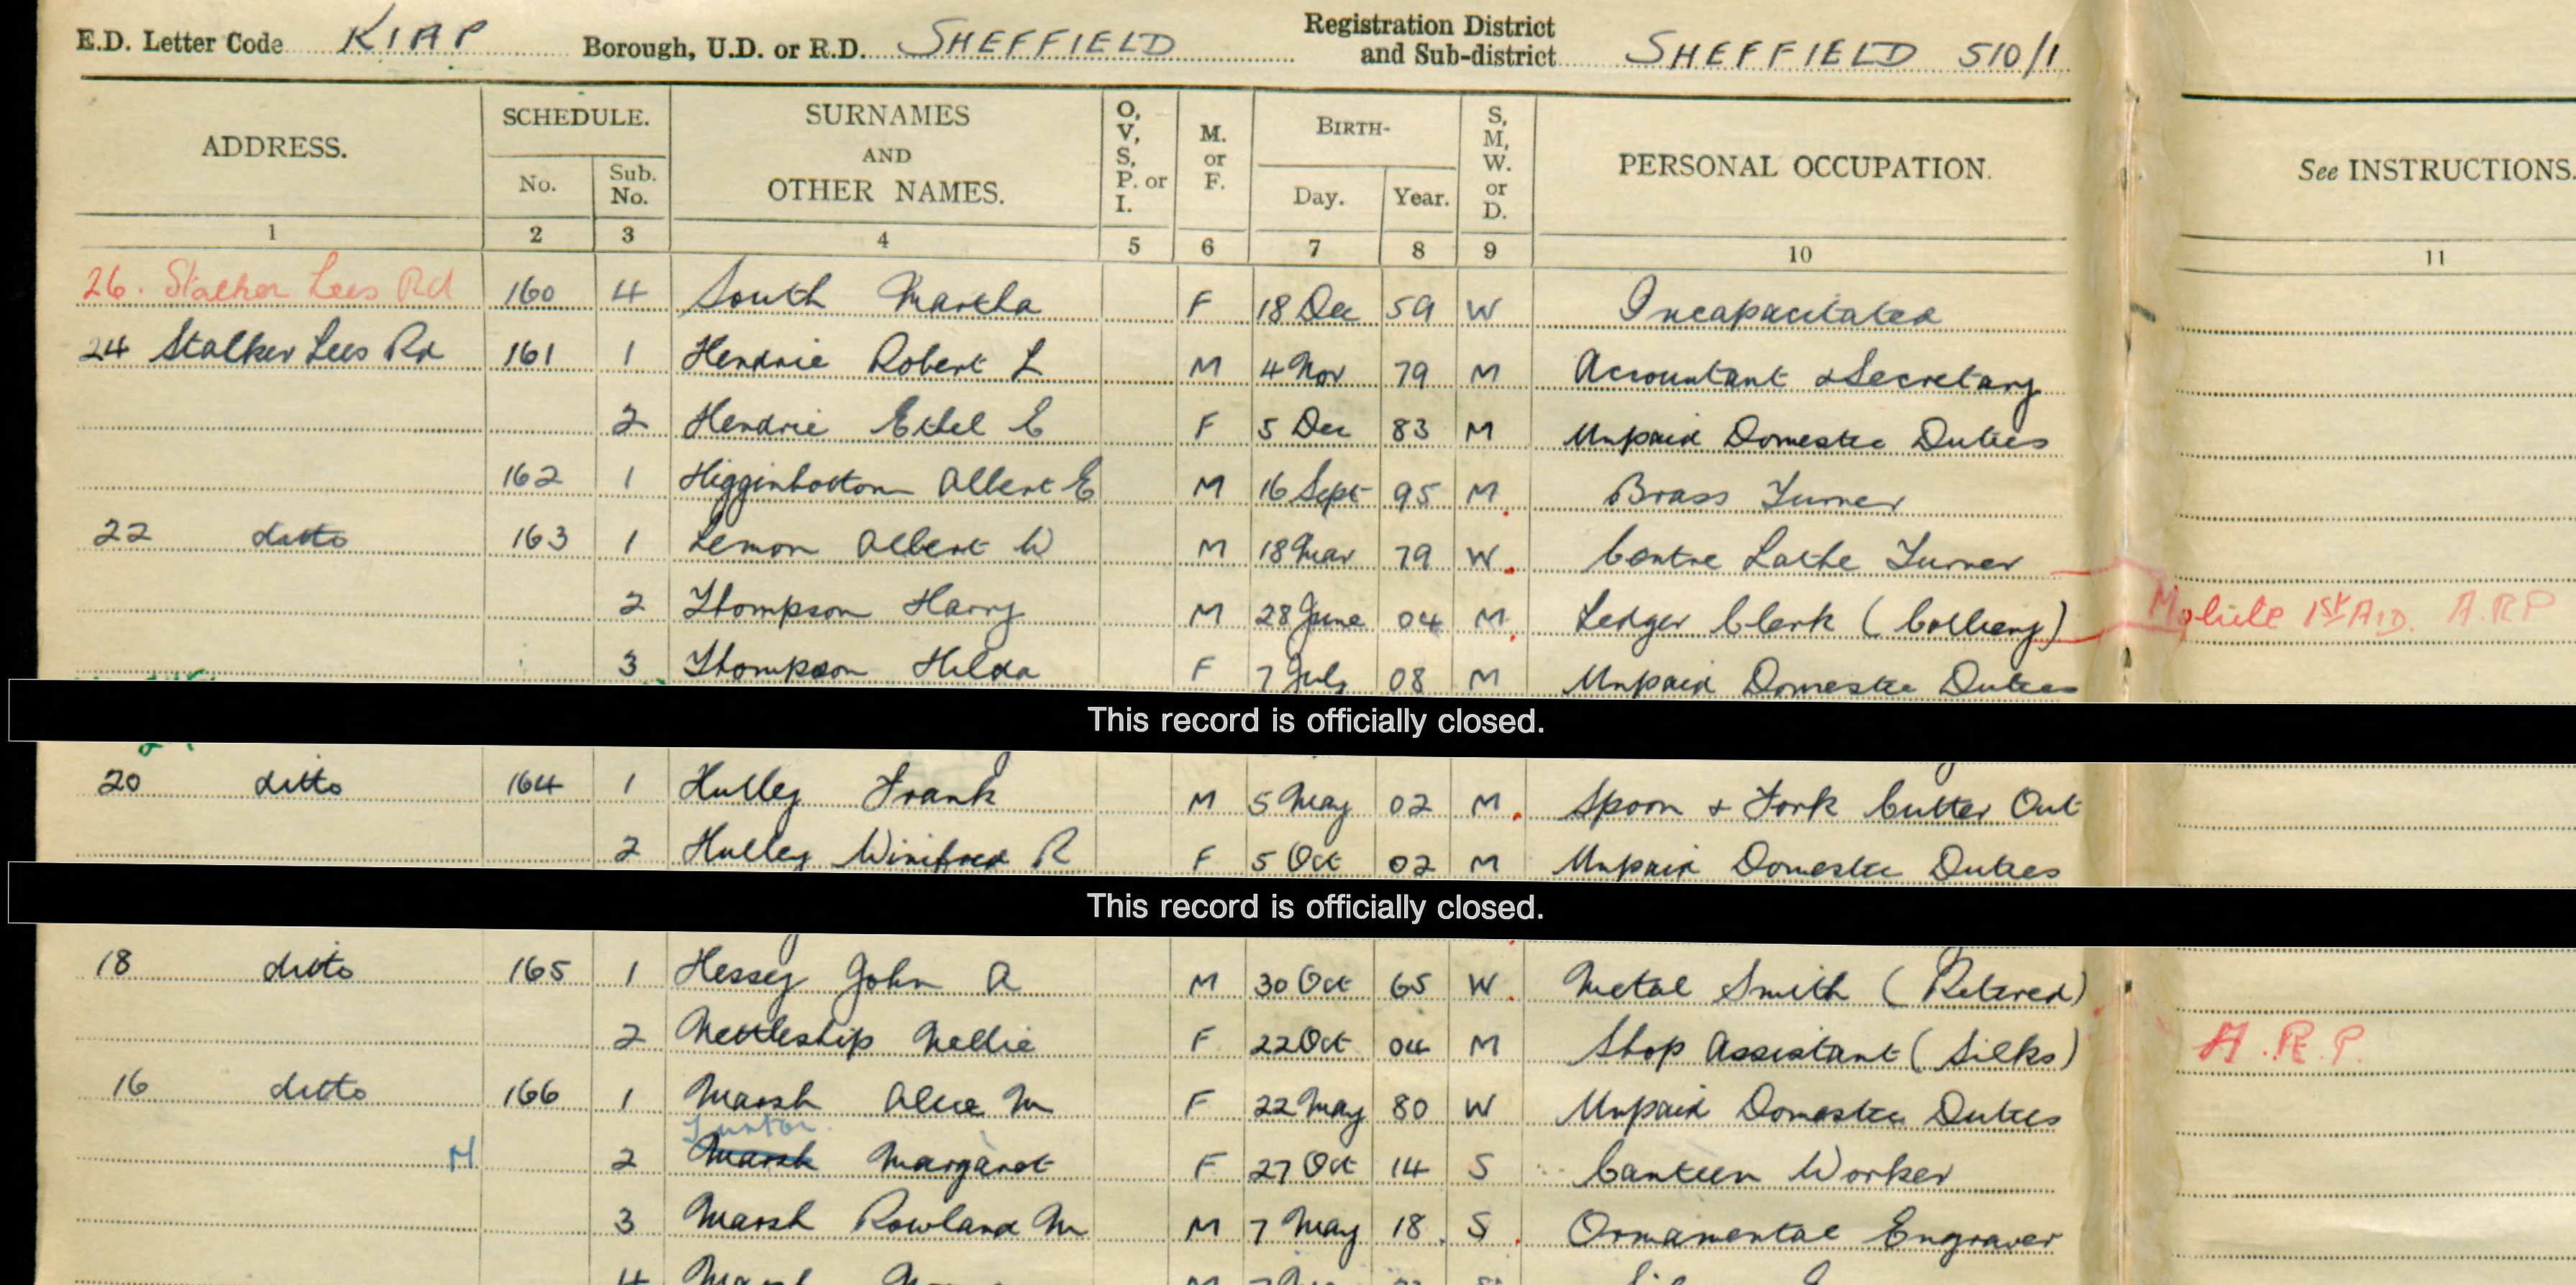 E.D. Letter Code KIAP Borough, U.D. or R.D. SHEFFIELD Registration District and Sub-district SHEFFIELD 510/1
ADDRESS. SCHEDULE. No. Sub. No. SURNAMES AND OTHER NAMES. O, V, S, P. or I. M. or F. BIRTH- Day. Year. S, M, W. or D. PERSONAL OCCUPATION. See INSTRUCTIONS.
1 2 3 4 5 6 7 8 9 10 11
26. Stalker Lees Rd 160 4 South Martha F 18 Dec 59 W Incapacitated
24 Stalker Lees Rd 161 1 Hendrie Robert L M 4 Nov 79 M Accountant & Secretary
2 Hendrie Ethel E F 5 Dec 83 M Unpaid Domestic Duties
162 1 Higginbottom Albert E M 16 Sept 95 M Brass Turner
22 ditto 163 1 Lemon Albert W M 18 Mar 79 W Centre Lathe Turner
2 Thompson Harry M 28 June 04 M Ledger Clerk (Colliery) Mobile 1st AID. A.R.P
3 Thompson Hilda F 7 July 08 M Unpaid Domestic Duties
This record is officially closed.
20 ditto 164 1 Hulley Frank M 5 May 02 M Spoon & Fork Cutter Out
2 Hulley Winifred R F 5 Oct 02 M Unpaid Domestic Duties
This record is officially closed.
18 ditto 165 1 Hessey John A M 30 Oct 65 W Metal Smith (Retired)
2 Nettleship Nellie F 22 Oct 04 M Shop Assistant (Silks) A.R.P.
16 ditto 166 1 Marsh Alice M F 22 May 80 W Unpaid Domestic Duties
M 2 Marsh Margaret F 27 Oct 14 S Canteen Worker
3 Marsh Rowland M M 7 May 18 S Ornamental Engraver
4 Marsh